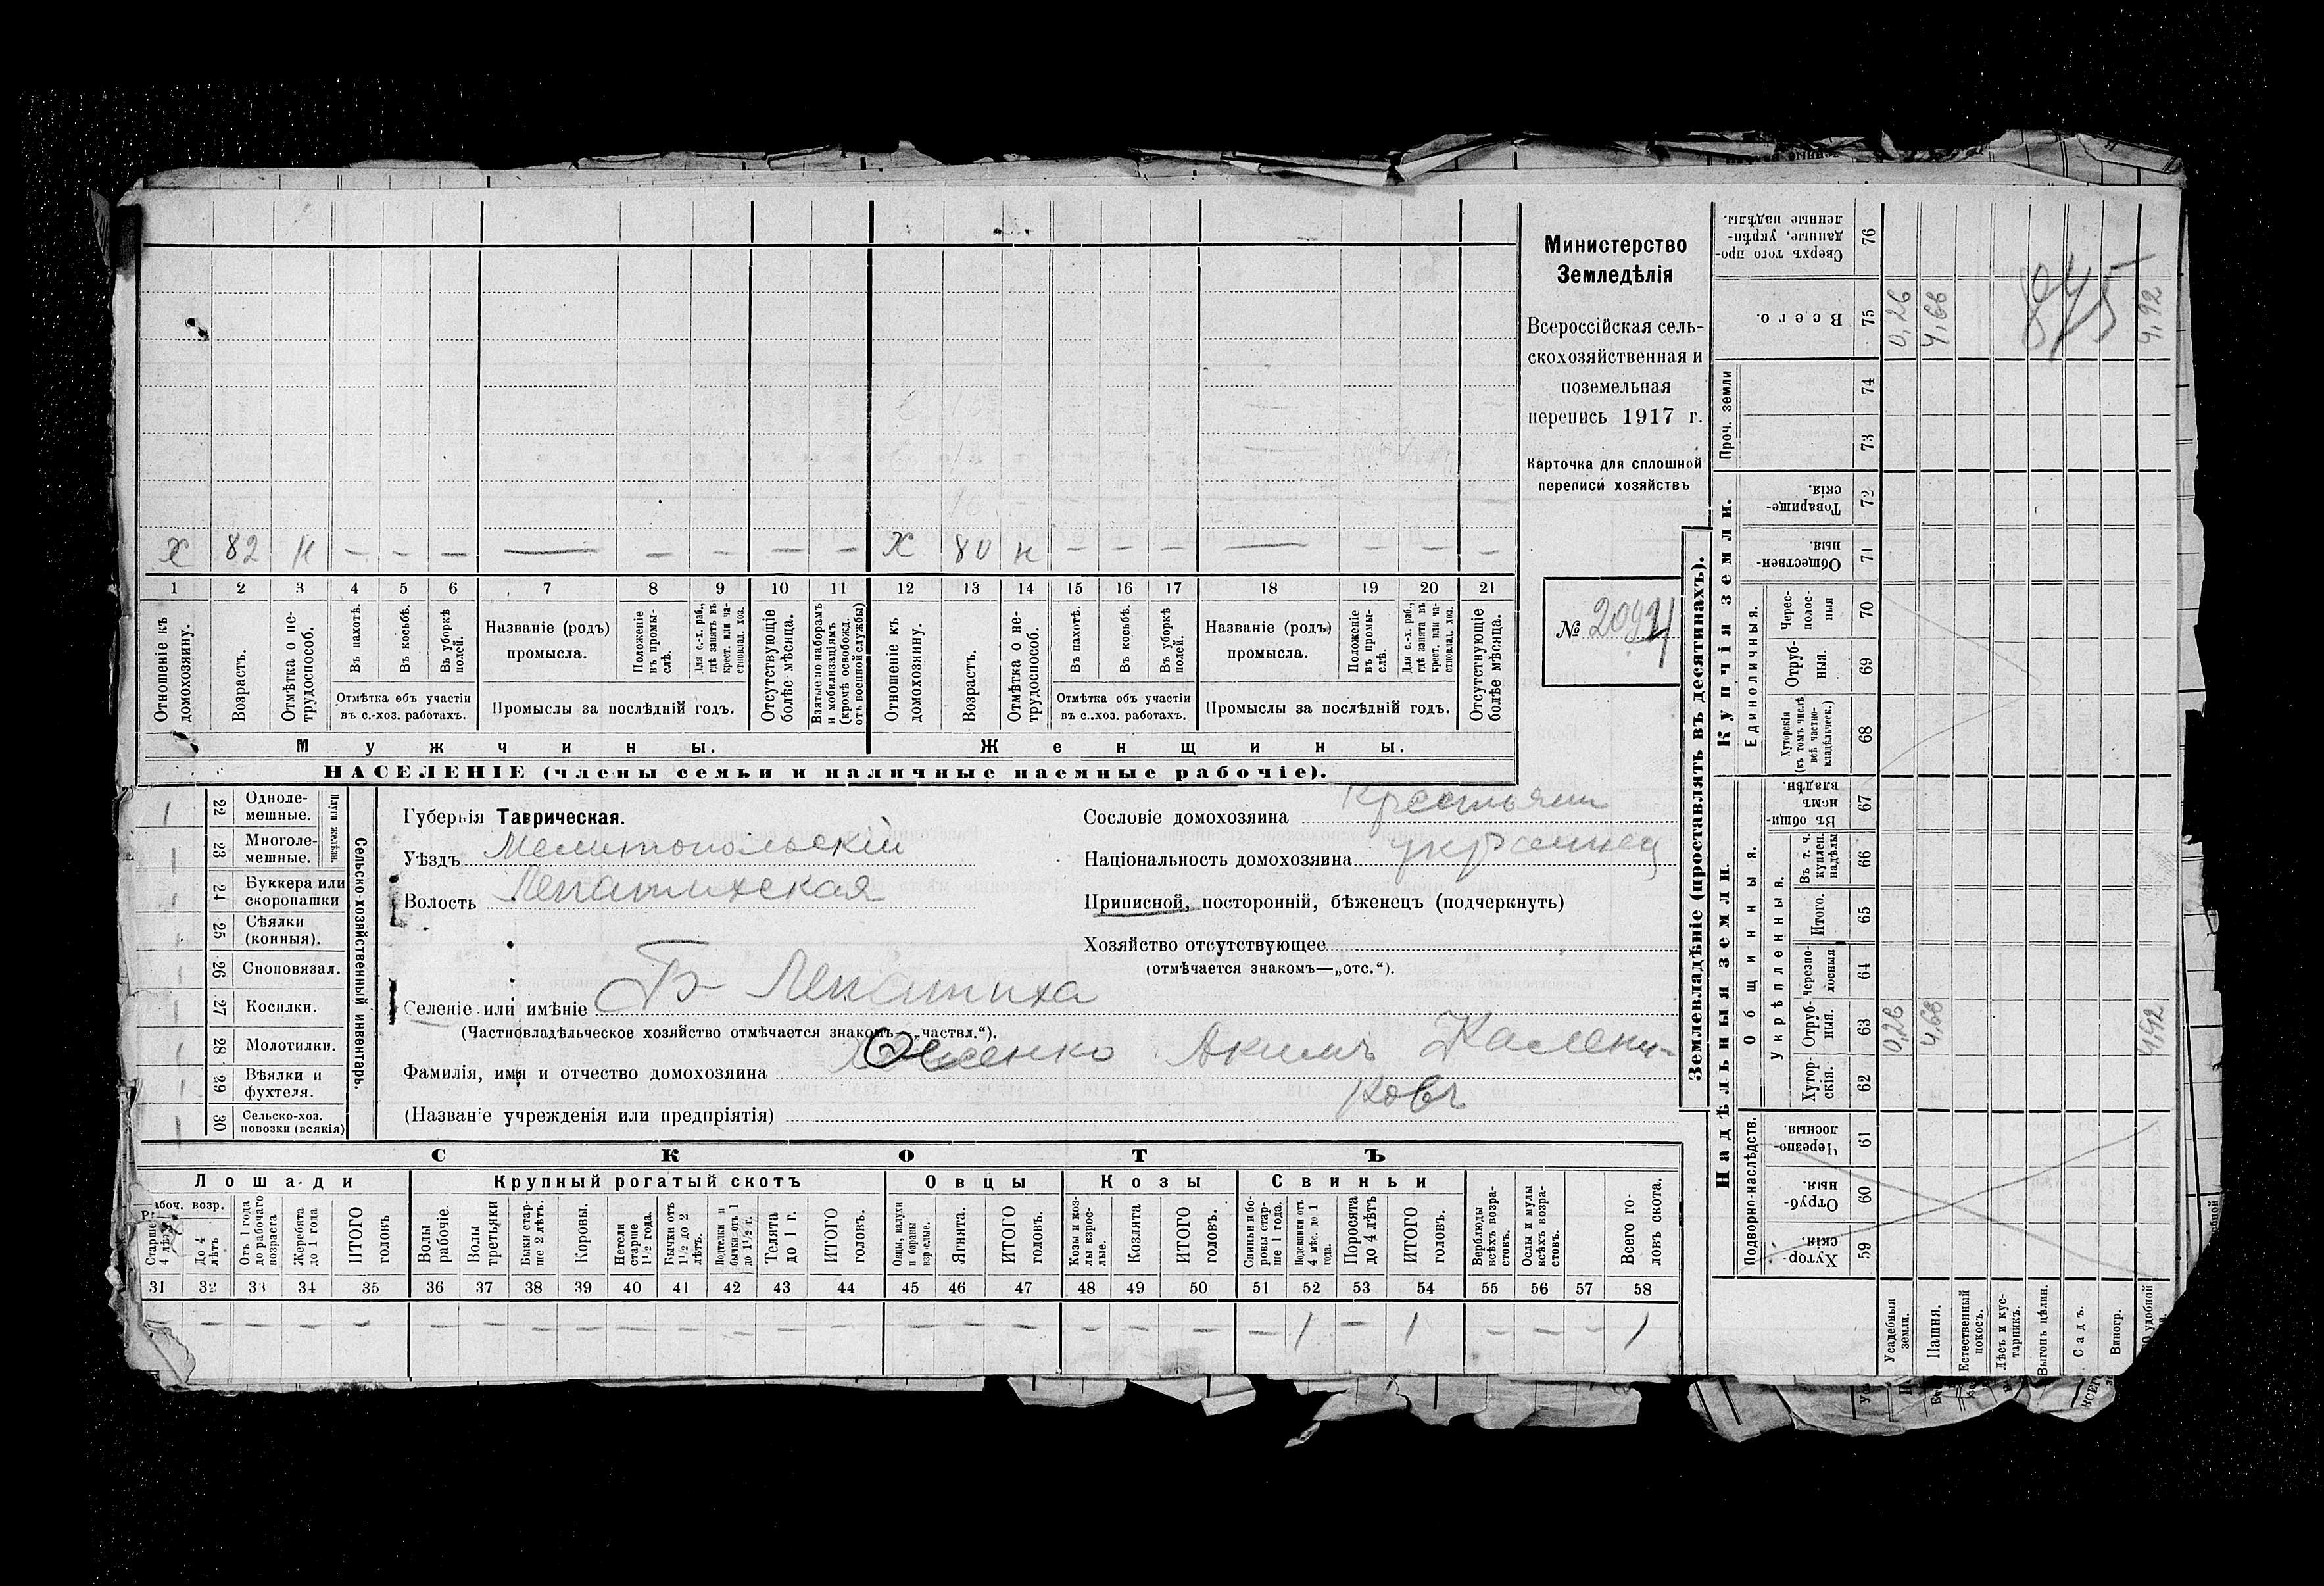 Министерство
Земледѣлія
Всероссійская сель-
скохозяйственная и
поземельная
перепись 1917 г.
Карточка для сплошной
переписи хозяйствъ
№
х 82 н — — — — — — — — х 80 н — — — — — — —
1 2 3 4 5 6 7 8 9 10 11 12 13 14 15 16 17 18 19 20 21
Отношеніе къ домохозяину.
Возрастъ.
Отмѣтка о не-
трудоспособ.
Въ пахотѣ.
Въ косьбѣ.
Въ уборкѣ полей.
Отмѣтка объ участіи
въ с.-хоз. работахъ.
Названіе (родъ)
промысла.
Положеніе въ промы-
слѣ.
Для с.-х. раб., гдѣ занятъ въ крест. или ча-
стновлад. хоз.
Промыслы за послѣдній годъ.
Отсутствующіе болѣе мѣсяца.
Взятые по наборамъ и мобилизаціямъ (кромѣ освобожд. отъ военной службы)
Отношеніе къ домохозяину.
Возрастъ.
Отмѣтка о не-
трудоспособ.
Въ пахотѣ.
Въ косьбѣ.
Въ уборкѣ полей.
Отмѣтка объ участіи
въ с..хоз. работахъ.
Названіе (родъ)
промысла.
Положеніе въ промы-
слѣ.
Для с.-х. раб., гдѣ занята въ крест. или ча-
стновлад. хоз.
Промыслы за послѣдній годъ.
Отсутствующіе болѣе мѣсяца.
Мужчины. Женщины.
НАСЕЛЕНІЕ (члены семьи и наличные наемные рабочіе).
Сельско-хозяйственный инвентарь.
Плуги желѣзн.
22 Одноле-
мешные.
23 Многоле-
мешные.
24 Буккера или
скоропашки
25 Сѣялки
(конныя).
26 Сноповязал.
27 Косилки.
28 Молотилки.
29 Вѣялки и
фухтеля.
30 Сельско-хоз.
повозки (всякія)
Губернія Таврическая.
Уѣздъ Мелитопольскій
Волость Лепатихская
Селеніе или имѣніе Б- Лепатиха
(Частновладѣльческое хозяйство отмѣчается знакомъ—„частвл.“).
Фамилія, имя и отчество домохозяина Акимъ Калени-
ковъ
(Названіе учрежденія или предпріятія)
Сословіе домохозяина Крестьянин
Національность домохозяина украинец
Приписной, посторонній, бѣженецъ (подчеркнуть)
Хозяйство отсутствующее
(отмѣчается знакомъ—„отс.“).
СКОТЪ
Лошади Крупный рогатый скотъ Овцы Козы Свиньи
Рабоч. возр.
Старше 4 лѣтъ
До 4 лѣтъ
Отъ 1 года до рабочаго возраста
Жеребята до 1 года
ИТОГО головъ
Волы рабочіе.
Волы третьяки
Быки стар-
ше 2 лѣтъ.
Коровы.
Нетели старше 1½ года.
Бычки отъ 1½ до 2 лѣтъ.
Подтелки и бычки отъ 1 до 1½ г.
Телята до 1 г.
ИТОГО головъ.
Овцы, валухи и бараны взрослые.
Ягнята.
ИТОГО головъ.
Козы и коз-
лы взрос-
лые.
Козлята
ИТОГО головъ.
Свиньи и бо-
ровы стар-
ше 1 года.
Подсвинки отъ 4 мѣс. до 1 года.
Поросята до 4 лѣтъ
ИТОГО головъ.
Верблюды всѣхъ возра-
стовъ.
Ослы и мулы всѣхъ возра-
стовъ.
Всего го-
ловъ скота.
31 32 33 34 35 36 37 38 39 40 41 42 43 44 45 46 47 48 49 50 51 52 53 54 55 56 57 58
— — — — — — — — — — — — — — — — — — — — — 1 — 1 — — — 1
Землевладѣніе (проставлять въ десятинахъ).
Надѣльныя земли. Купчія земли. Проч. земли
Подворно-наслѣдств.
Общинныя.
Укрѣпленныя.
Единоличныя.
59 Хутор-
скія.
60 Отруб-
ныя.
61 Черезпо-
лосныя.
62 Хутор-
скія.
63 Отруб-
ныя.
64 Черезпо-
лосныя
65 Итого.
66 Въ т. ч. куплен. надѣлы
67 Въ общи-
номъ владѣн.
68 Хуторскія (въ томъ числѣ всѣ частно-
владѣльческ.)
69 Отруб-
ныя.
70 Черес-
полос-
ныя
71 Обществен-
ныя.
72 Товарище-
скія.
73
74
75 Всего.
76 Сверхъ того про-
данные, укрѣп-
ленные надѣлы.
Усадебныя земли. 0,26 0,26
Пашня. 4,66 4,66
Естественный покосъ.
Лѣсъ и кус-
тарникъ.
Выгонъ цѣлин.
Садъ.
Виногр.
удобной 4,92 4,92
845